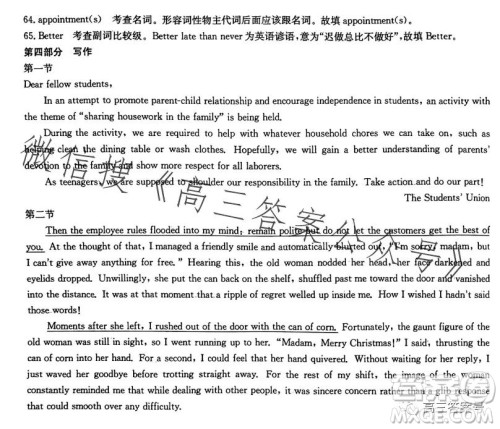 64. appointment(s) 考查名词。形容词性物主代词后面应该跟名词。故填 appointment(s)。
65. Better 考查副词比较级。Better late than never 为英语谚语,意为“迟做总比不做好”,故填 Better。
第四部分 写作
第一节
Dear fellow students,
In an attempt to promote parent-child relationship and encourage independence in students, an activity with
the theme of “sharing housework in the family” is being held.
During the activity, we are required to help with whatever household chores we can take on, such as
helping clean the dining table or wash clothes. Hopefully, we will gain a better understanding of parents'
devotion to the family and show more respect for all laborers.
As teenagers, we are supposed to shoulder our responsibility in the family. Take action and do our part!
The Students' Union
第二节
Then the employee rules flooded into my mind; remain polite but do not let the customers get the best of
you. At the thought of that, I managed a friendly smile and automatically blurted out, “I'm sorry, madam, but
I can't give away anything for free.” Hearing this, the old woman nodded her head, her face darkened and
eyelids dropped. Unwillingly, she put the can back on the shelf, shuffled past me toward the exit and vanished
into the distance. It was at that moment that a ripple of regret welled up inside me. How I wished I hadn't said
those words!
Moments after she left, I rushed out of the door with the can of corn. Fortunately, the gaunt figure of the
old woman was still in sight, so I went running up to her. “Madam, Merry Christmas!” I said, thrusting the
can of corn into her hand. For a second, I could feel that her hand quivered. Without waiting for her reply, I
just waved goodbye before trotting straight away. For the rest of my shift, the image of the woman
constantly reminded me that while dealing with other people, it was sincere concern rather than blunt resistance
that could smooth over any difficulty.
微信搜《高三答案公众号》
高三答案号